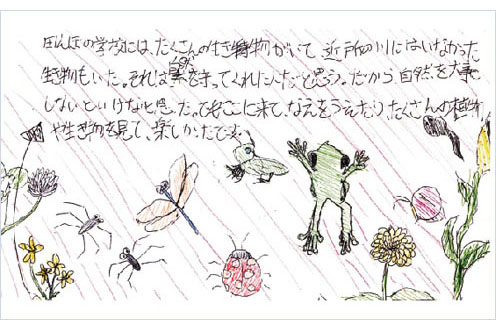 田んぼの学校には、たくさんの生き物がいて、近所の川にはいなかった
生き物もいた。それは自然を守ってくれた人だと思う。だから自然を大事に
しないといけないと思った。でもここに来て、なえをうえたり、たくさんの植物
や生き物を見て、楽しかったです。